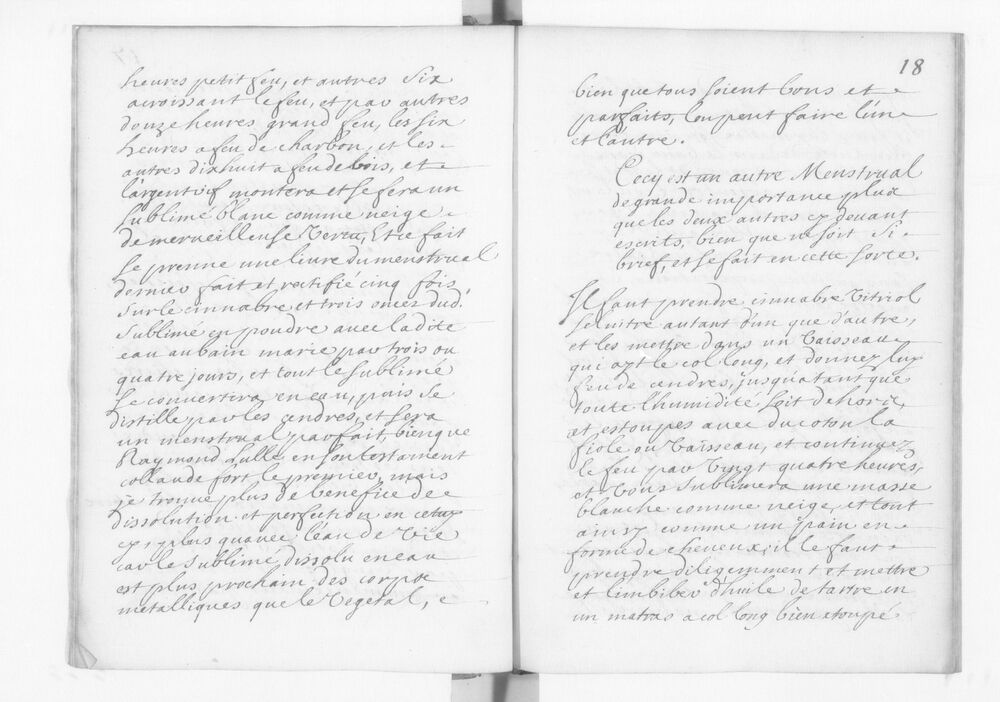 heures petit feu, et autres Six
acroissant le feu, et par autres
douze heures grand feu, les six
heures a feu de charbon, et les
autres dixhuit a feu de bois, et
l'argent vif montera et se fera un
Sublimé blanc comme neige
de merveilleuse Vertu, Et ce fait
Se prenne une livre du menstrual
dernier fait et rectifié cinq fois
Sur le cinnabre et trois onces dud.
Sublimé en poudre avec ladite
eau au bain marie par trois ou
quatre jours, et tout le Sublimé
Se convertira en eau, puis se
distille par les cendres, et sera
un menstrual parfait, bienque
Raymond Lulle en son testament
collaude fort le premier, mais
je trouve plus de benefice de
dissolution et perfection en cetuy
cy, plus qu'avec l'eau de Vie
car le Sublimé dissolu en eau
est plus prochain des corps
metalliques que le Vegetal, e
18
bien que tous soient bons et
parfaits, l'on peut faire l'un
et l'autre.
Cecy est un autre Menstrual
de grande importance plus
que les deux autres cy devant
escrits, bien que ne soit Si
brief, et se fait en cette Sorte.
Il faut prendre cinnabre Vitriol
selnitre autant d'un que d'autre,
et les mettre dans un Vaisseau
qui ayt le col long, et donnez luy
feu de cendres, jusqu'a tant que
toute l'humidité soit dehors,
et estoupes avec du coton la
fiole ou Vaisseau, et continuez
le feu par Vingt quatre heures,
et Vous Sublimera une masse
blanche comme neige, et tout
ainsy comme un pain en
forme de cheveux; il le faut
prendre diligemment et mettre
et l'imbiber d'huile de tartre en
un matras a col long bien etoupé